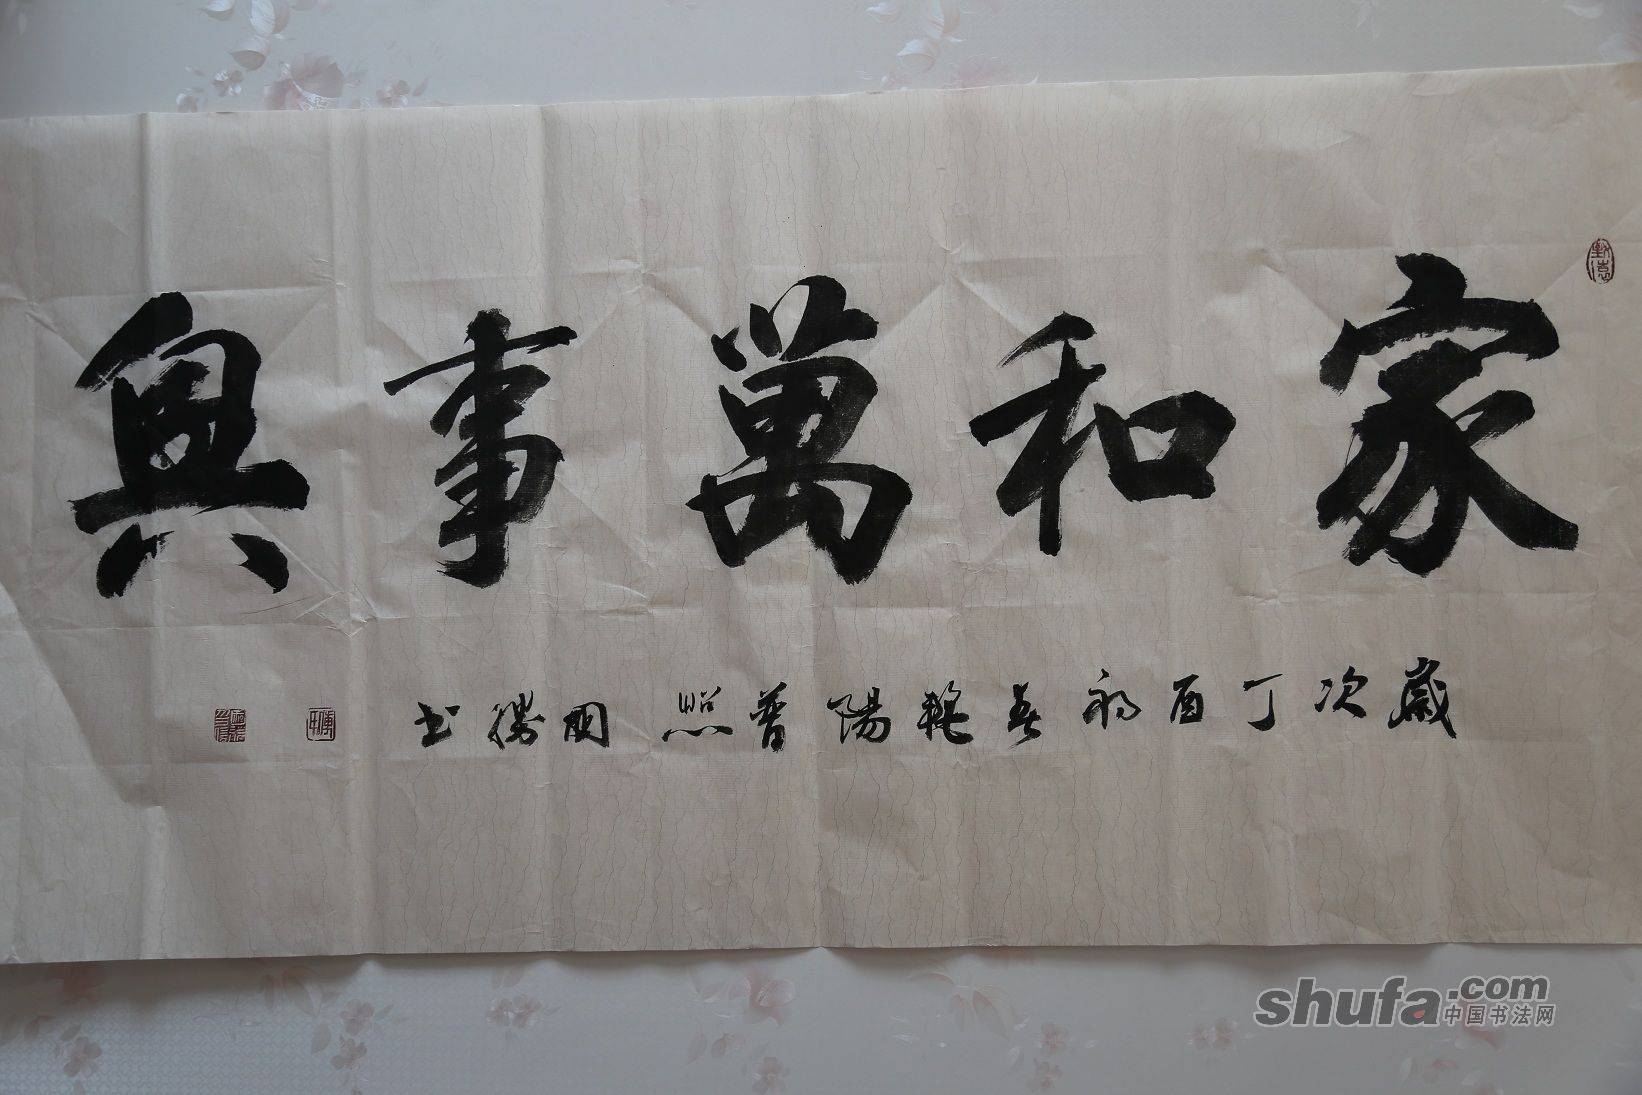 家和萬事興
歲次丁酉初春艷陽普照國勝书
shufa.com
中国书法网